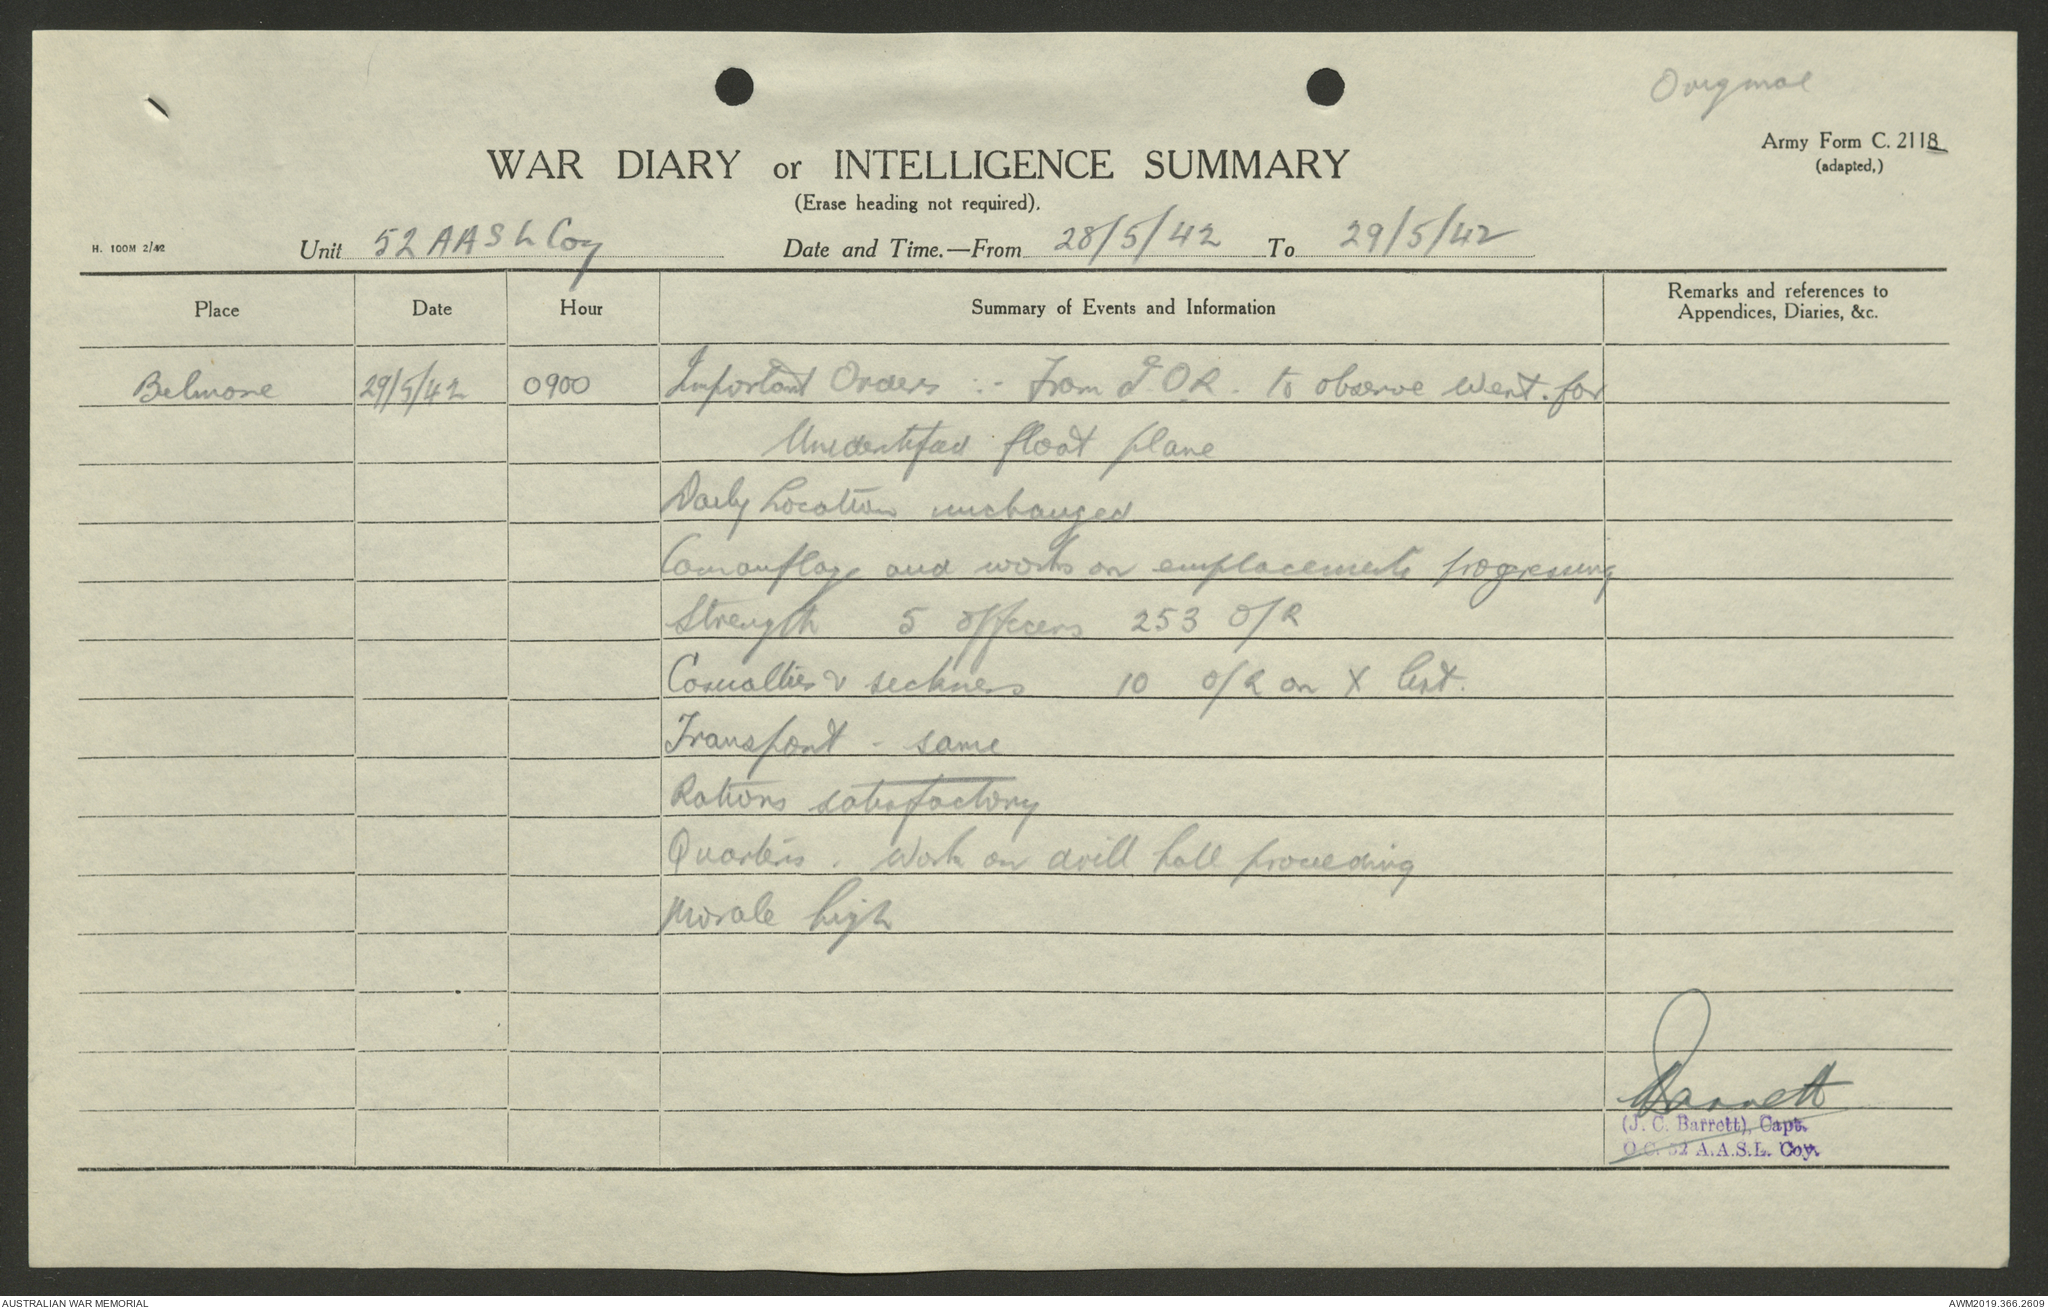 Original
Army Form C. 2118
(adapted,)
WAR DIARY or INTELLIGENCE SUMMARY
(Erase heading not required).
H. 100M 2/42
Unit 52 AASL Coy Date and Time.—From 28/5/42 To 29/5/42
Place Date Hour Summary of Events and Information Remarks and references to
Appendices, Diaries, &c.
Belmore 29/5/42 0900 Important Orders :- From G.O.R. to observe went. for
Unidentified float plane
Daily Location unchanged
Camouflage and works on emplacements progressing
Strength 5 officers 253 O/R
Casualties & sickness 10 O/R on X list.
Transport - same
Rations satisfactory
Quarters. Work on drill hall proceeding
Morale high
Barrett
(J. C. Barrett), Capt.
O.C. 52 A.A.S.L. Coy.
AUSTRALIAN WAR MEMORIAL
AWM2019.366.2609